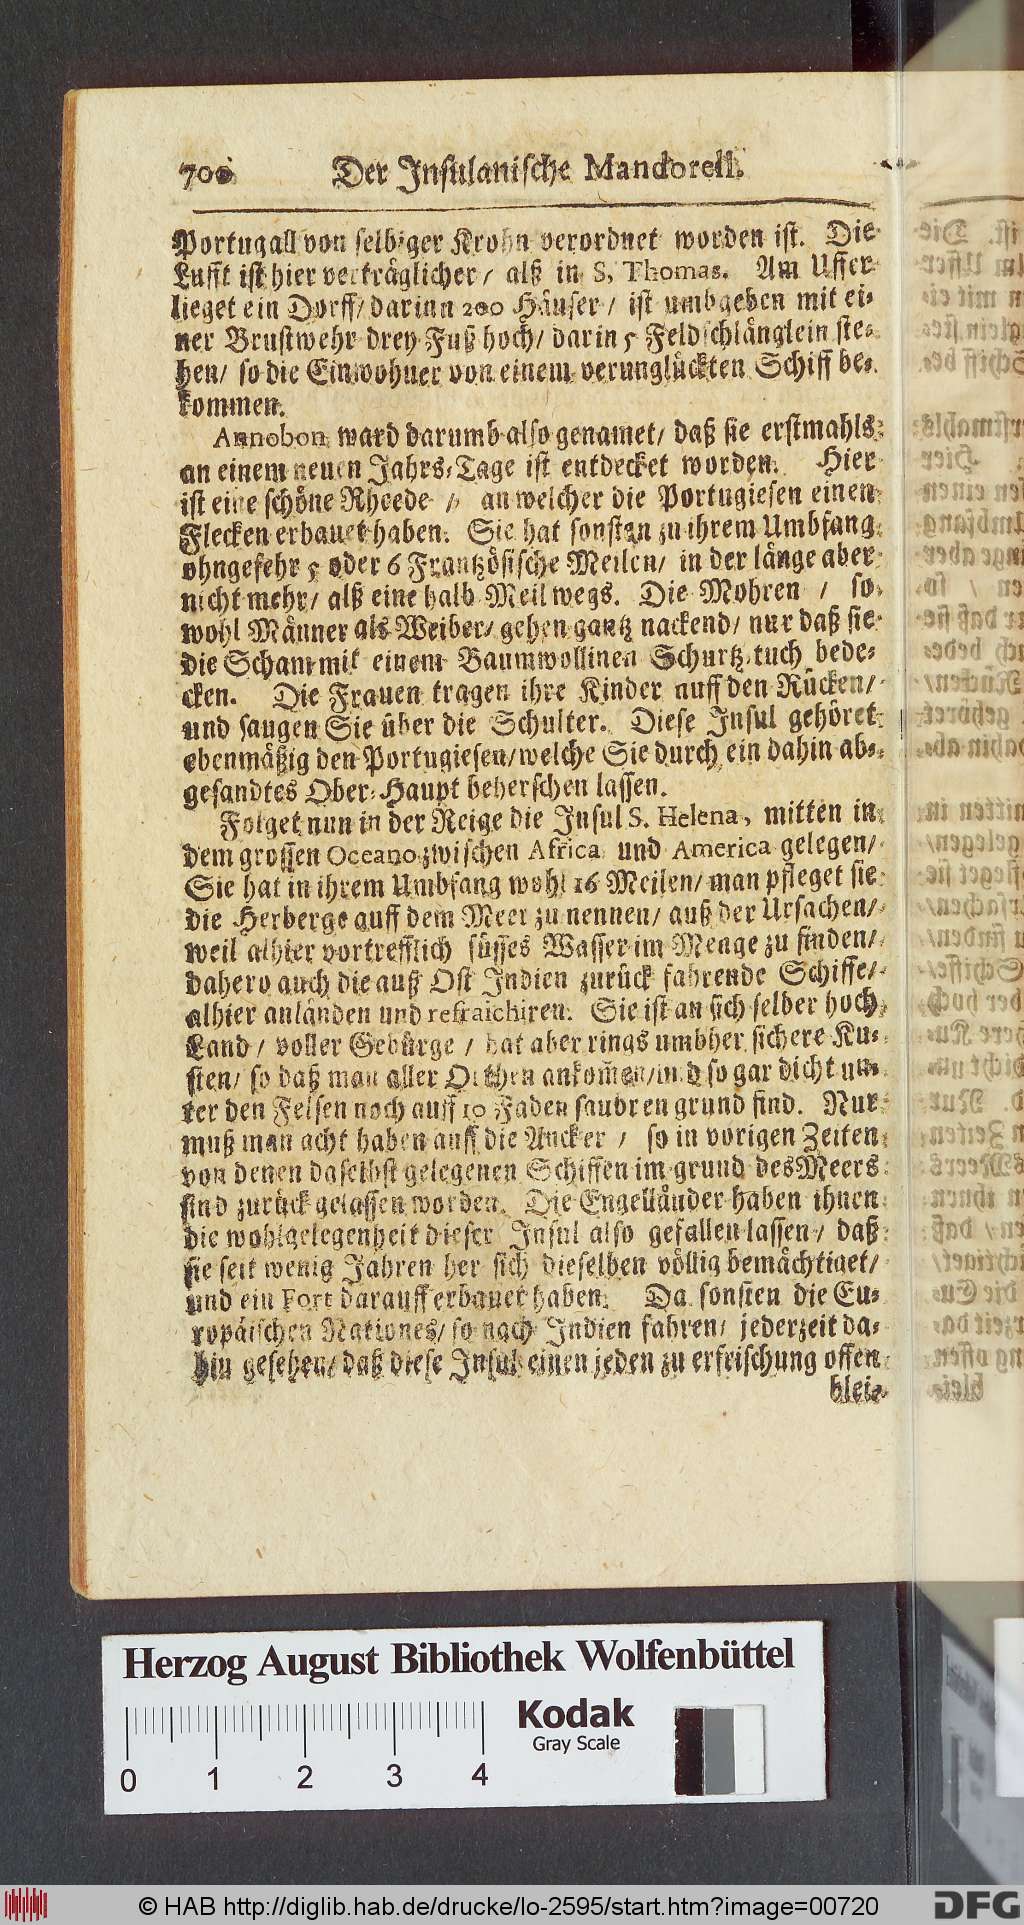 700 Der Insulanische Mandorell.
Portugall von selbiger Krohn verordnet worden ist. Die
Lufft ist hier verträglicher / alß in S. Thomas. Am Uffer
lieget ein Dorff / darinn 200 Häuser / ist umbgeben mit ei⸗
ner Brustwehr drey Fuß hoch / darin 5 Feldschlänglein ste⸗
hen / so die Einwohner von einem verunglückten Schiff be⸗
kommen.
Annobon ward darumb also genamet / daß sie erstmahls
an einem neuen Jahrs⸗Tage ist entdecket worden. Hier
ist eine schöne Rheede / an welcher die Portugiesen einen
Flecken erbauet haben. Sie hat sonsten zu ihrem Umbfang
ohngefehr 5 oder 6 Frantzösische Meilen / in der länge aber
nicht mehr / alß eine halb Meil wegs. Die Mohren / so
wohl Männer als Weiber / gehen gantz nackend / nur daß sie
die Scham mit einem Baumwollinen Schurtz⸗tuch bede⸗
cken. Die Frauen tragen ihre Kinder auff den Rücken /
und saugen Sie über die Schulter. Diese Insul gehöret
ebenmäßig den Portugiesen / welche Sie durch ein dahin ab⸗
gesandtes Ober⸗Haupt beherschen lassen.
Folget nun in der Reige die Insul S. Helena, mitten in
dem grossen Oceano zwischen Africa und America gelegen /
Sie hat in ihrem Umbfang wohl 16 Meilen / man pfleget sie
die Herberge auff dem Meer zu nennen / auß der Ursachen /
weil alhier vortrefflich süsses Wasser im Menge zu finden /
dahero auch die auß Ost Indien zurück fahrende Schiffe /
alhier anländen und refraichiren. Sie ist an sich selber hoch
Land / voller Gebürge / hat aber rings umbher sichere Kü⸗
sten / so daß man aller Orthen ankom̃en / und so gar dicht un⸗
ter den Felsen noch auff 10 Faden saubren grund find. Nur
muß man acht haben auff die Ancker / so in vorigen Zeiten
von denen daselbst gelegenen Schiffen im grund des Meers
sind zurück gelassen worden. Die Engelländer haben ihnen
die wohlgelegenheit dieser Insul also gefallen lassen / daß
sie seit wenig Jahren her sich dieselben völlig bemächtiget /
und ein Fort darauff erbauet haben. Da sonsten die Eu⸗
ropäischen Nationes / so nach Indien fahren / jederzeit da⸗
hin gesehen / daß diese Insul einen jeden zu erfrischung offen
blei⸗
Herzog August Bibliothek Wolfenbüttel
Kodak
Gray Scale
0 1 2 3 4
© HAB http://diglib.hab.de/drucke/lo-2595/start.htm?image=00720
DFG